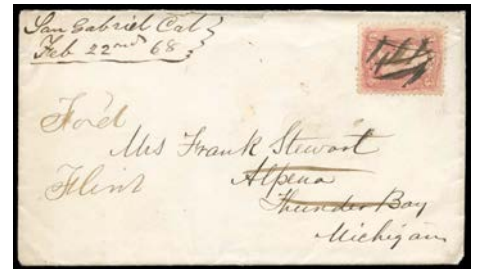 San Gabriel Cal
Feb 22nd 68
Ford
Mrs Frank Stewart
Flint
Alpena
Thunder Bay
Michigan